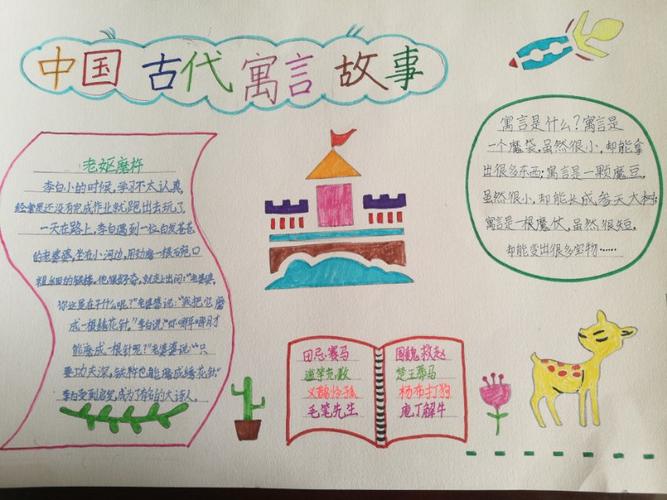 中国古代寓言故事
老妪磨杵
李白小的时候,学习不太认真
经常是还没有完成作业就跑出去玩了
一天在路上,李白遇到一位白发苍苍
的老婆婆,坐在小河边,用劲磨一根石
粗的铁棒。他很好奇,就走上前问:“老婆婆,
你这是在干什么呢?”老婆婆说:“我把它磨
成一根绣花针。”李白说:“哪年哪月才
能磨成一根针呢?”老婆婆说:“只
要功夫深,铁杵也能磨成绣花针”
李白受到启发,成为了有名的大诗人。
寓言是什么?寓言是
一个魔袋,虽然很小,却能拿
出很多东西;寓言是一颗魔豆,
虽然很小,却能长成参天大树;
寓言是一根魔伏,虽然很短,
却能变出很多实物……
田忌赛马
围魏救赵
楚王葬马
杨布打狗
毛笔先生
庖丁解牛